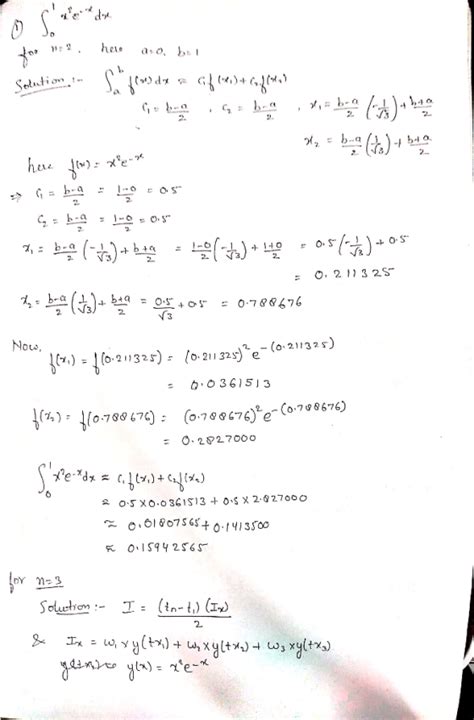 ① ∫₀¹ x²e⁻ˣdx
for n=2, here a=0, b=1
Solution :- ∫ₐᵇ f(x)dx ≈ C₁f(x₁)+C₂f(x₂)
C₁ = (b-a)/2 , C₂ = (b-a)/2 , x₁ = (b-a)/2 (-1/√3) + (b+a)/2
x₂ = (b-a)/2 (1/√3) + (b+a)/2
here f(x) = x²e⁻ˣ
⇒ C₁ = (b-a)/2 = (1-0)/2 = 0.5
C₂ = (b-a)/2 = (1-0)/2 = 0.5
x₁ = (b-a)/2 (-1/√3) + (b+a)/2 = (1-0)/2 (-1/√3) + (1+0)/2 = 0.5(-1/√3) + 0.5
= 0.211325
x₂ = (b-a)/2 (1/√3) + (b+a)/2 = 0.5/√3 + 0.5 = 0.788676
Now,
f(x₁) = f(0.211325) = (0.211325)² e^-(0.211325)
= 0.0361513
f(x₂) = f(0.788676) = (0.788676)² e^-(0.788676)
= 0.2827000
∫₀¹ x²e⁻ˣdx ≈ C₁f(x₁)+C₂f(x₂)
≈ 0.5 X 0.0361513 + 0.5 X 2.827000
≈ 0.01807565 + 0.1413500
≈ 0.15942565
for n=3
Solution :- I = (tn-t₁)(Ix)/2
& Ix = w₁ x y(tx₁) + w₂ x y(tx₂) + w₃ x y(tx₃)
y(x) = x²e⁻ˣ